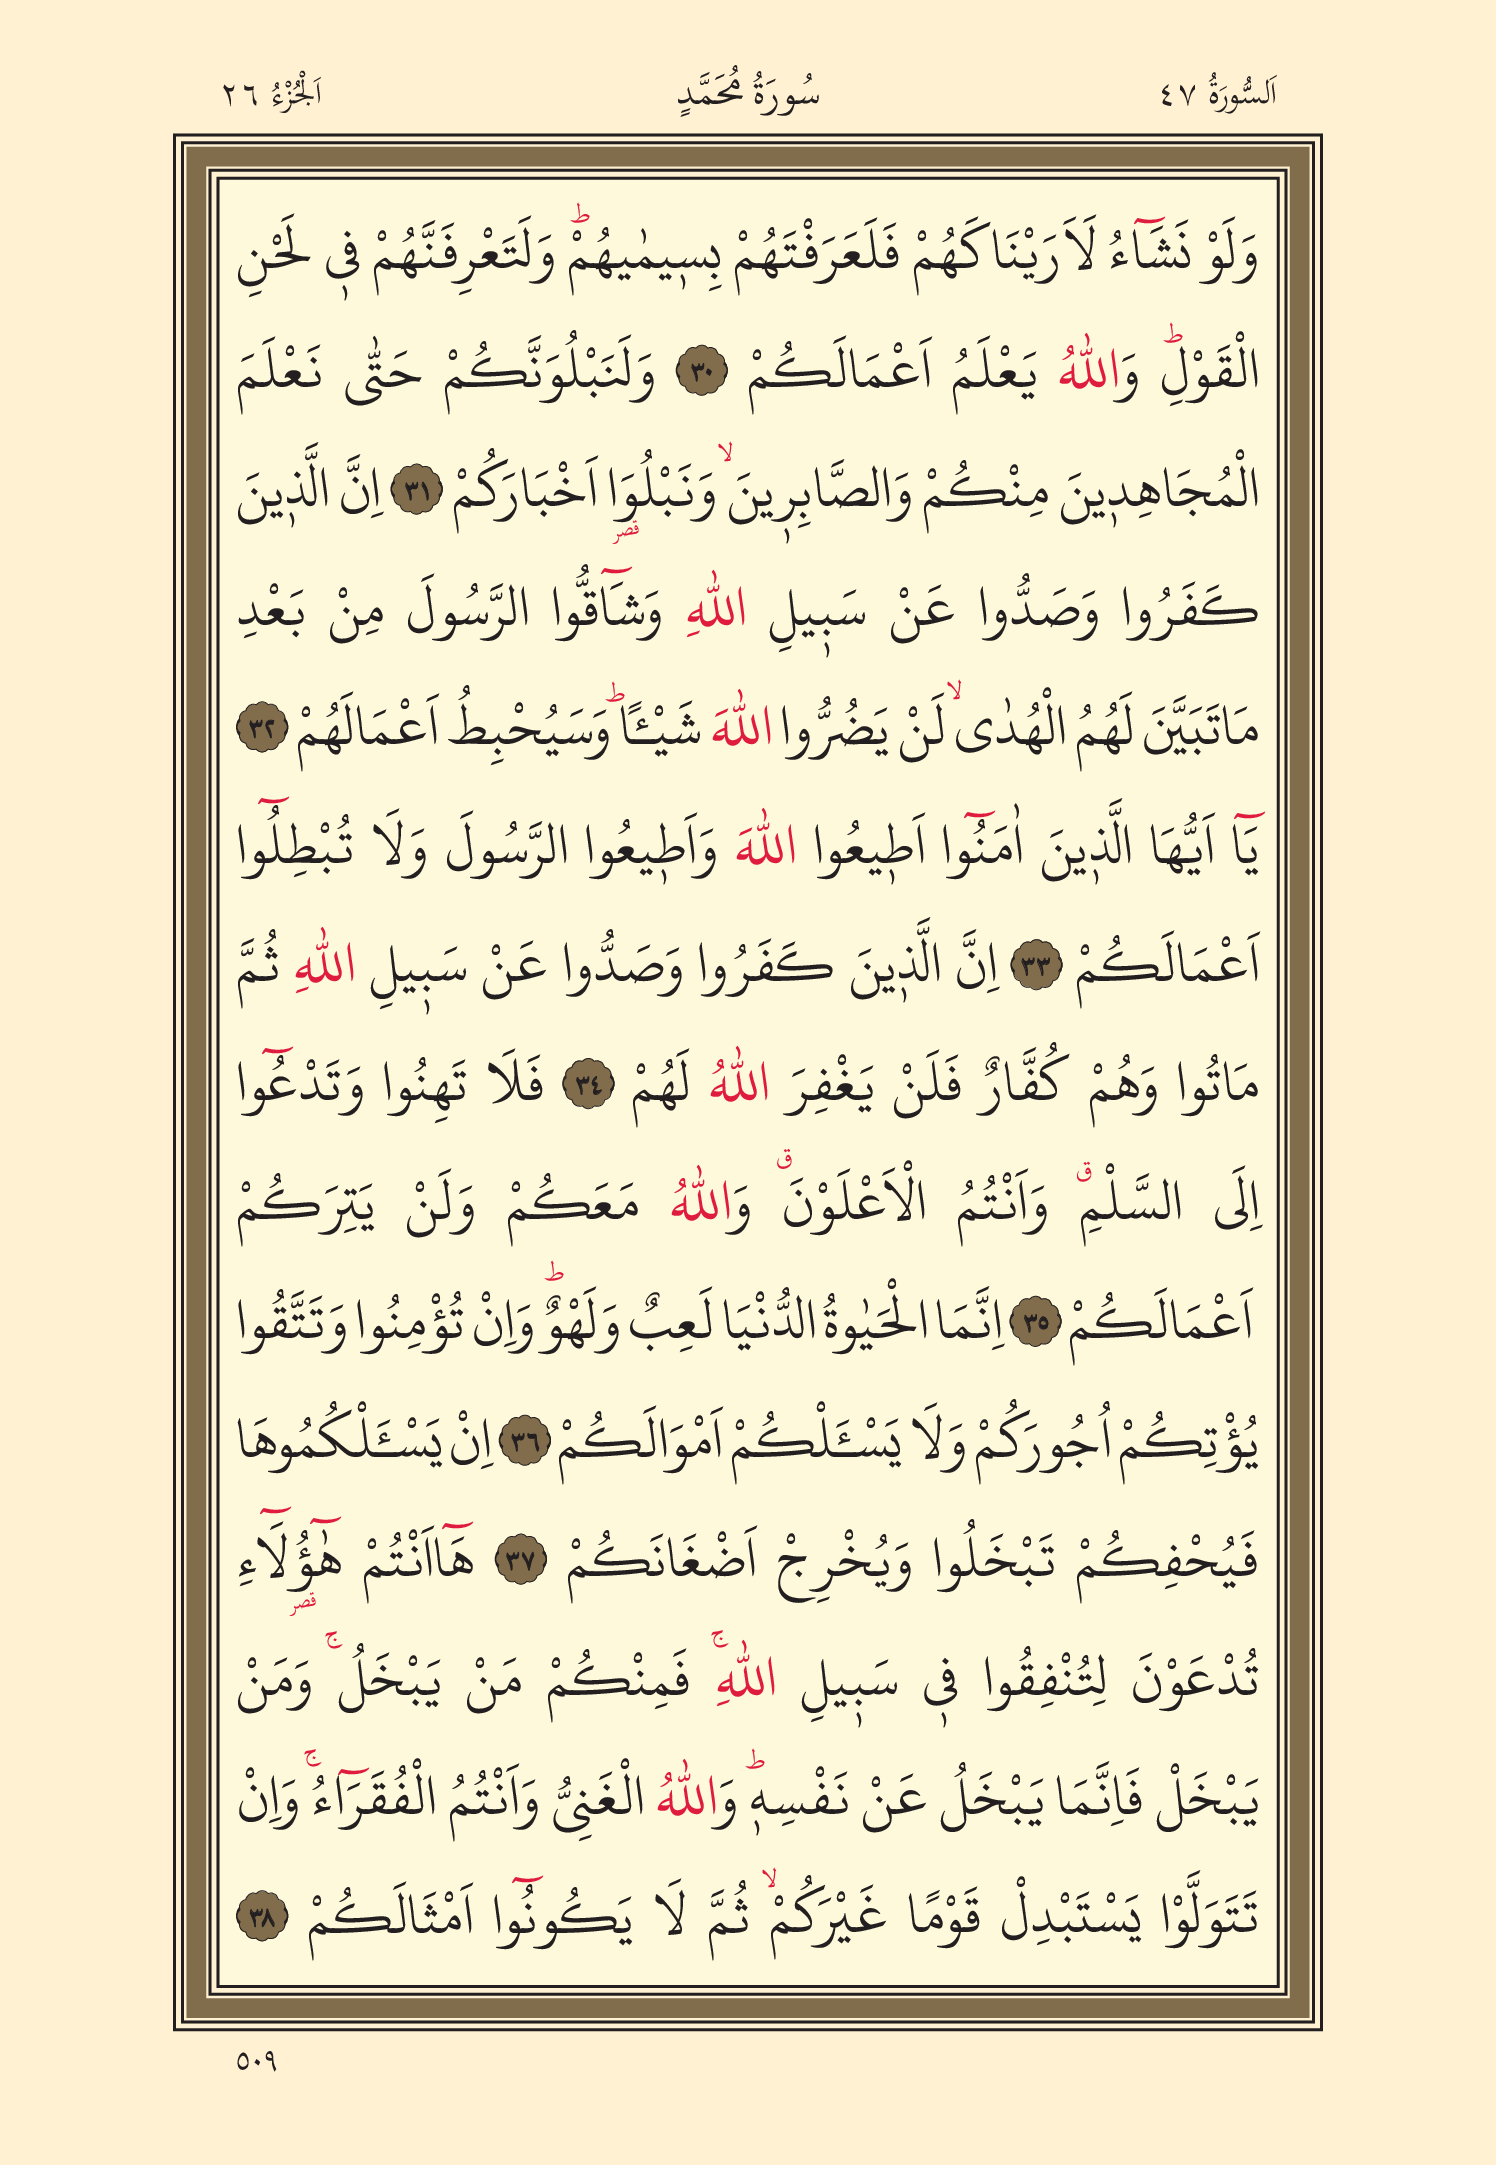 اَلسُّورَةُ ٤٧ سُورَةُ مُحَمَّدٍ اَلْجُزْءُ ٢٦
وَلَوْ نَشَٓاءُ لَاَرَيْنَاكَهُمْ فَلَعَرَفْتَهُمْ بِسٖيمٰيهُمْؕ وَلَتَعْرِفَنَّهُمْ فٖي لَحْنِ
الْقَوْلِؕ وَاللّٰهُ يَعْلَمُ اَعْمَالَكُمْ ٣٠ وَلَنَبْلُوَنَّكُمْ حَتّٰى نَعْلَمَ
الْمُجَاهِدٖينَ مِنْكُمْ وَالصَّابِرٖينَۙ وَنَبْلُوَا قصر اَخْبَارَكُمْ ٣١ اِنَّ الَّذٖينَ
كَفَرُوا وَصَدُّوا عَنْ سَبٖيلِ اللّٰهِ وَشَٓاقُّوا الرَّسُولَ مِنْ بَعْدِ
مَاتَبَيَّنَ لَهُمُ الْهُدٰىۙ لَنْ يَضُرُّوا اللّٰهَ شَيْـًٔاؕ وَسَيُحْبِطُ اَعْمَالَهُمْ ٣٢
يَٓا اَيُّهَا الَّذٖينَ اٰمَنُٓوا اَطٖيعُوا اللّٰهَ وَاَطٖيعُوا الرَّسُولَ وَلَا تُبْطِلُٓوا
اَعْمَالَكُمْ ٣٣ اِنَّ الَّذٖينَ كَفَرُوا وَصَدُّوا عَنْ سَبٖيلِ اللّٰهِ ثُمَّ
مَاتُوا وَهُمْ كُفَّارٌ فَلَنْ يَغْفِرَ اللّٰهُ لَهُمْ ٣٤ فَلَا تَهِنُوا وَتَدْعُٓوا
اِلَى السَّلْمِࣗ وَاَنْتُمُ الْاَعْلَوْنَࣗ وَاللّٰهُ مَعَكُمْ وَلَنْ يَتِرَكُمْ
اَعْمَالَكُمْ ٣٥ اِنَّمَا الْحَيٰوةُ الدُّنْيَا لَعِبٌ وَلَهْوٌؕ وَاِنْ تُؤْمِنُوا وَتَتَّقُوا
يُؤْتِكُمْ اُجُورَكُمْ وَلَا يَسْـَٔلْكُمْ اَمْوَالَكُمْ ٣٦ اِنْ يَسْـَٔلْكُمُوهَا
فَيُحْفِكُمْ تَبْخَلُوا وَيُخْرِجْ اَضْغَانَكُمْ ٣٧ هَٓااَنْتُمْ هٰٓؤُ۬لَٓاءِ قصر
تُدْعَوْنَ لِتُنْفِقُوا فٖي سَبٖيلِ اللّٰهِۚ فَمِنْكُمْ مَنْ يَبْخَلُۚ وَمَنْ
يَبْخَلْ فَاِنَّمَا يَبْخَلُ عَنْ نَفْسِهٖؕ وَاللّٰهُ الْغَنِيُّ وَاَنْتُمُ الْفُقَرَٓاءُۚ وَاِنْ
تَتَوَلَّوْا يَسْتَبْدِلْ قَوْمًا غَيْرَكُمْۙ ثُمَّ لَا يَكُونُٓوا اَمْثَالَكُمْ ٣٨
٥٠٩